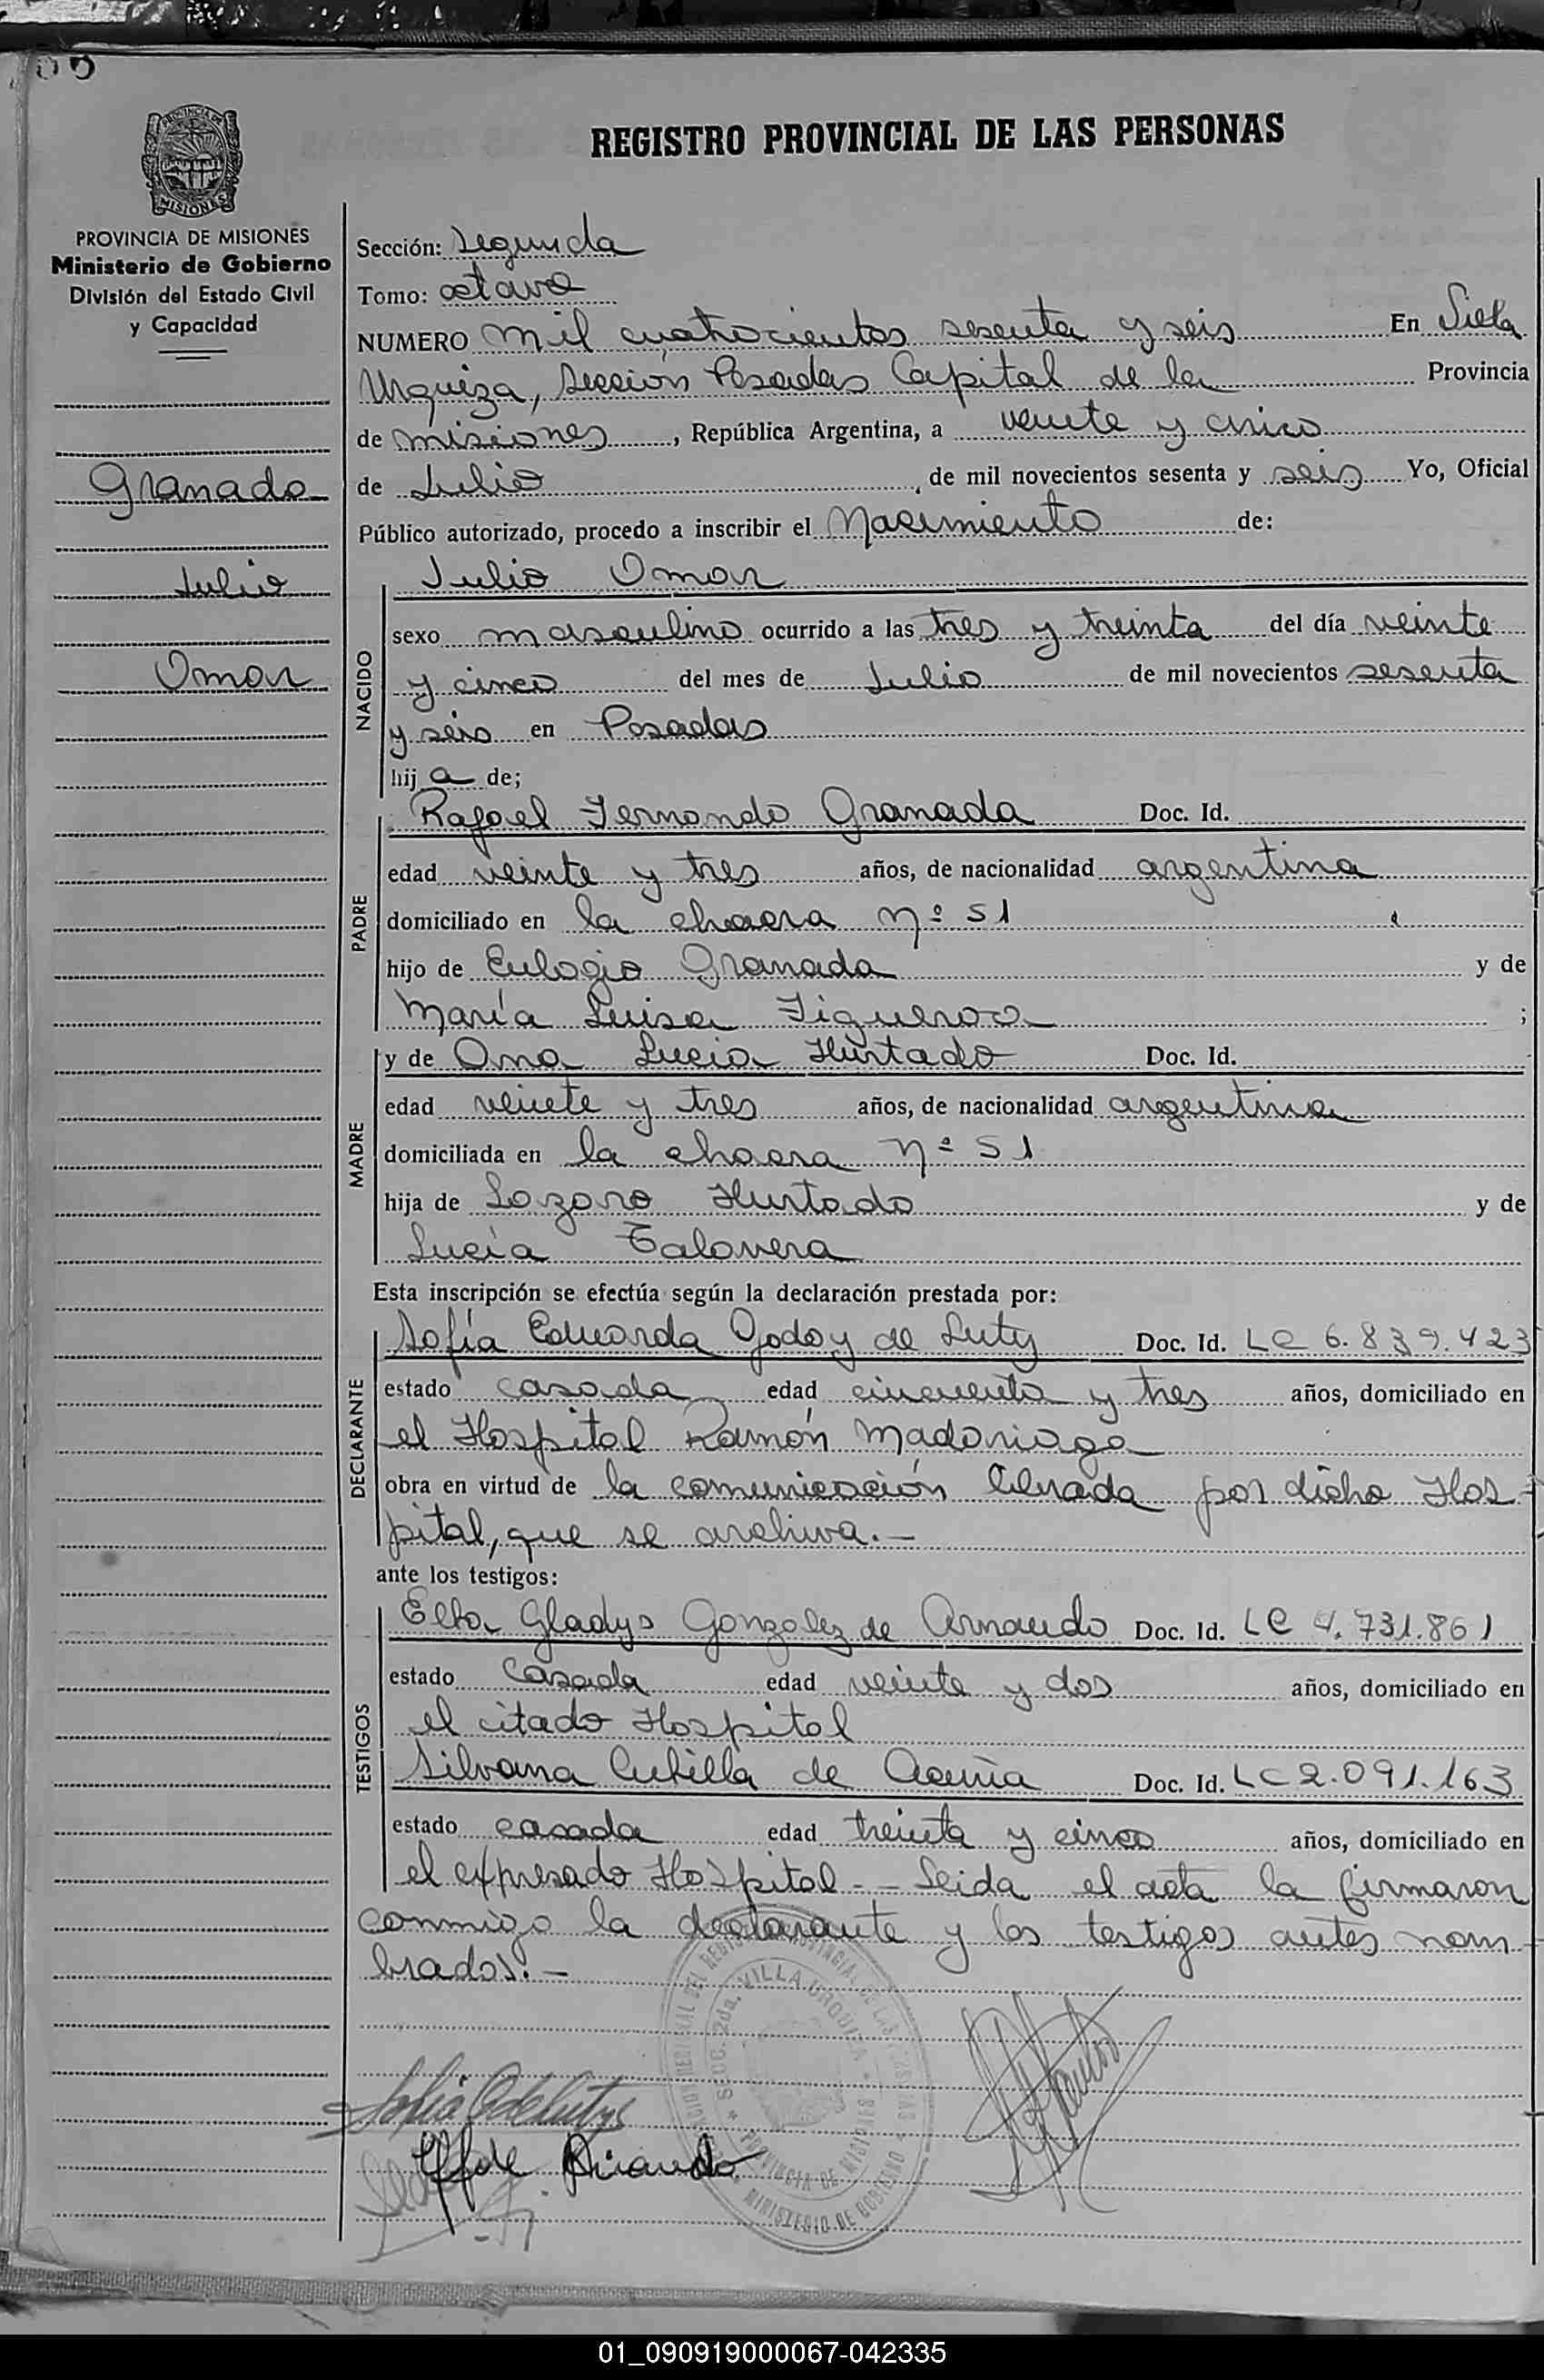 REGISTRO PROVINCIAL DE LAS PERSONAS
PROVINCIA DE MISIONES
Ministerio de Gobierno
División del Estado Civil
y Capacidad
Granado
Julio
Omar
Sección: Segunda
Tomo: octavo
NUMERO mil cuatrocientos sesenta y seis En Villa
Urquiza, Sección Posadas Capital de la Provincia
de misiones, República Argentina, a veinte y cinco
de Julio, de mil novecientos sesenta y seis Yo, Oficial
Público autorizado, procedo a inscribir el Nacimiento de:
Julio Omar
NACIDO
sexo masculino ocurrido a las tres y treinta del día veinte
y cinco del mes de Julio de mil novecientos sesenta
y seis en Posadas
hij a de;
PADRE
Rafael Fernando Granada Doc. Id.
edad veinte y tres años, de nacionalidad argentina
domiciliado en la chacra nº 51
hijo de Eulogio Granada y de
María Luisa Figueroa ;
MADRE
y de Ana Lucia Hurtado Doc. Id.
edad veinte y tres años, de nacionalidad argentina
domiciliada en la chacra nº 51
hija de Lozano Hurtado y de
Lucía Talavera
Esta inscripción se efectúa según la declaración prestada por:
DECLARANTE
Sofía Eduarda Godoy de Luty Doc. Id. LC 6.839.423
estado casada edad cincuenta y tres años, domiciliado en
el Hospital Ramón Madariaga
obra en virtud de la comunicación librada por dicho Hos-
pital, que se archiva.-
ante los testigos:
TESTIGOS
Elba Gladys Gonzalez de Arnaudo Doc. Id. LC 4.731.861
estado Casada edad veinte y dos años, domiciliado en
el citado Hospital
Silvana Cubilla de Acuña Doc. Id. LC 2.091.163
estado casada edad treinta y cinco años, domiciliado en
el expresado Hospital.- - Leida el acta la firmaron
conmigo la declarante y los testigos antes nom-
brados.-
SECC. 2da. VILLA URQUIZA
PROVINCIA DE MISIONES
MINISTERIO DE GOBIERNO
01_090919000067-042335